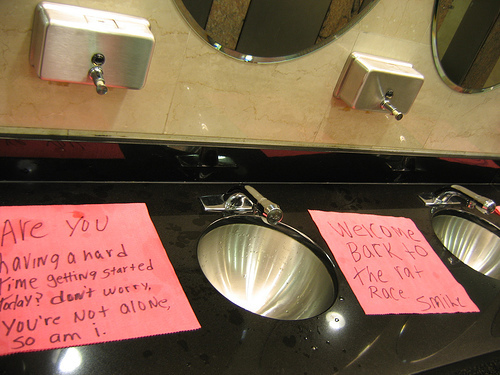 Are you
having a hard
time getting started
today? don't worry,
you're not alone,
so am i.
Welcome
Back to
the rat
Race smile